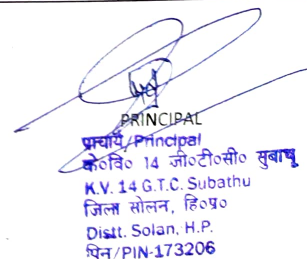 PRINCIPAL
प्राचार्य/Principal
के०वि० 14 जी०टी०सी० सुबाथू
K.V. 14 G.T.C. Subathu
जिला सोलन, हि०प्र०
Distt. Solan, H.P.
पिन/PIN-173206